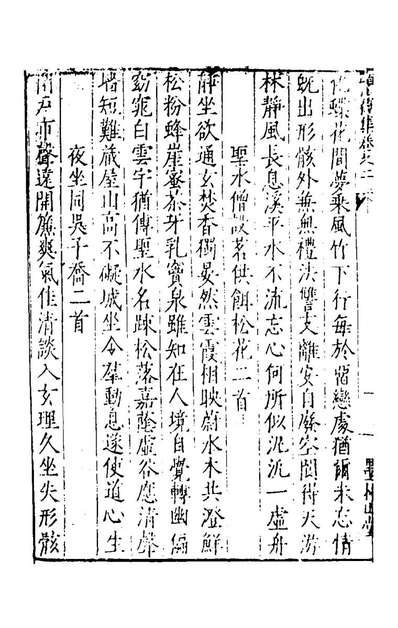 集卷之二
化蝶花間夢乘風竹下行每於留戀處猶爾未忘情
既出形骸外兼無禮法讐支離安自廢空闊得天游
林靜風長息溪平水不流忘心何所似汎汎一虛舟
聖水僧設茗供餌松花二首
靜坐欲通玄焚香獨晏然雲霞相映蔚水木共澄鮮
松粉蜂崖蜜茶牙乳竇泉雖知在人境自覺轉幽偏
窈窕白雲宇猶傳聖水名疎松落嘉蔭虛谷應清聲
墻短難藏屋山高不礙城坐令羣動息遂使道心生
夜坐同吳子喬二首
戶市聲遠開簾爽氣佳清談入玄理久坐失形骸